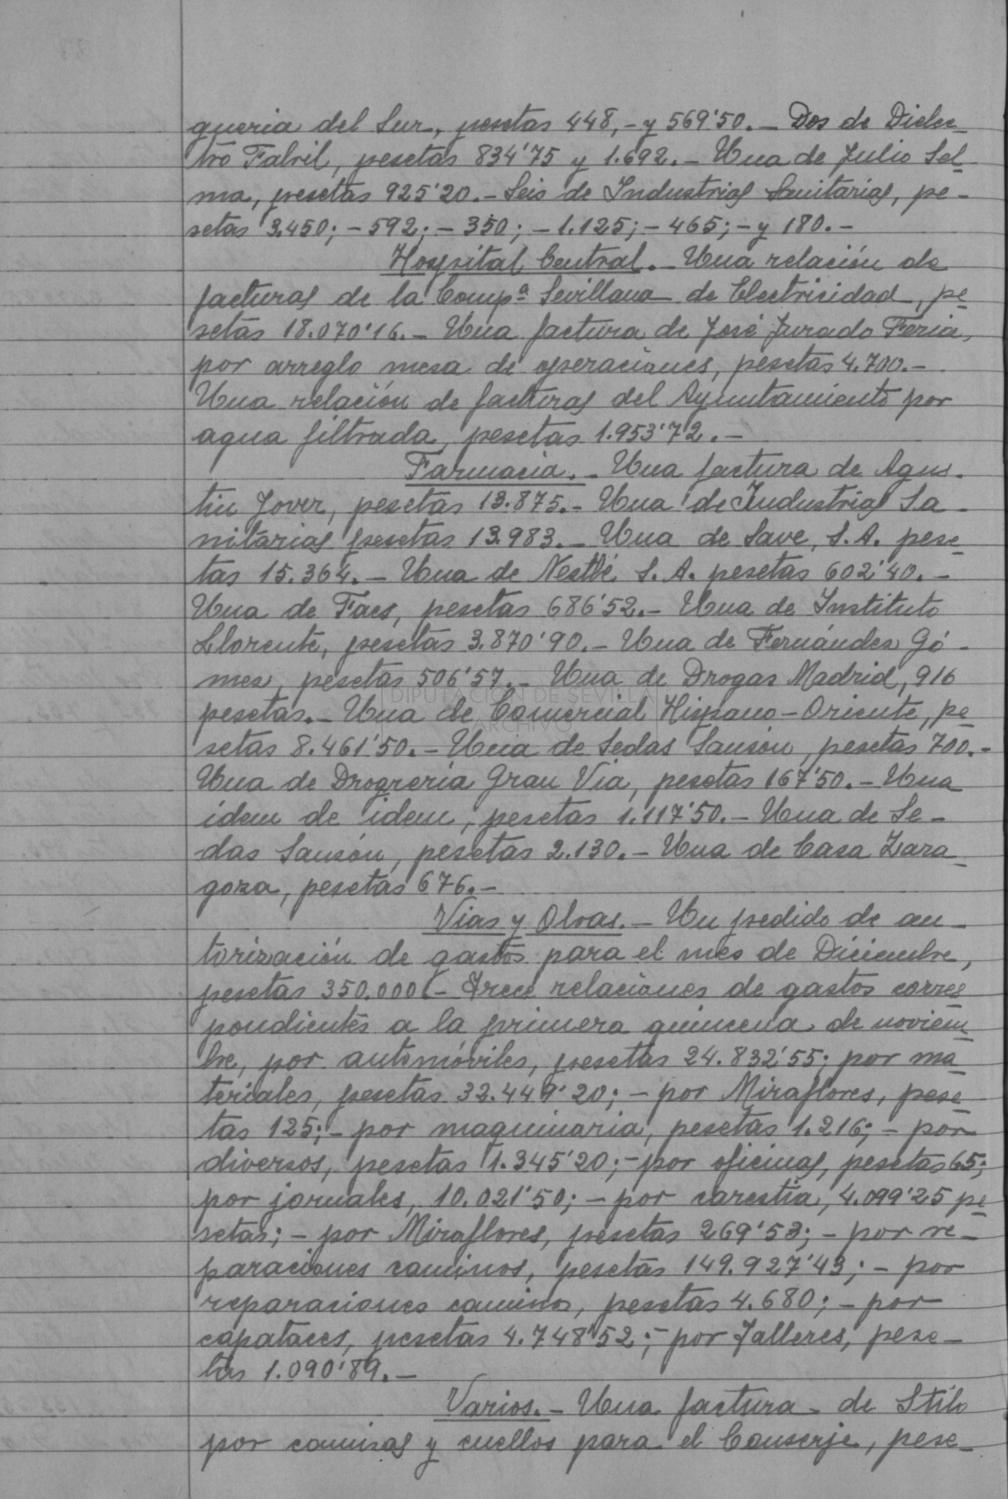 queria del Sur, pesetas 448,- y 569'50.- Dos de Dielec-
tro Fabril, pesetas 834'75 y 1.692.- Una de Julio Sel-
ma, pesetas 925'20.- Seis de Industrias Sanitarias, pe-
setas 3.450;- 592;- 350;- 1.125;- 465;- y 180.-
Hospital Central.- Una relación de
facturas de la Compª Sevillana de Electricidad, pe-
setas 18.070'16.- Una factura de José Jurado Feria,
por arreglo mesa de operaciones, pesetas 4.700.-
Una relación de facturas del Ayuntamiento por
agua filtrada, pesetas 1.953'72.-
Farmacia.- Una factura de Agus-
tin Jover, pesetas 13.875.- Una de Industrias Sa-
nitarias pesetas 13.983.- Una de Save, S.A. pese-
tas 15.364.- Una de Nestlé, S.A. pesetas 602'40.-
Una de Faes, pesetas 686'52.- Una de Instituto
Llorente, pesetas 3.870'90.- Una de Fernández Gó-
mez, pesetas 506'57.- Una de Drogas Madrid, 916
DIPUTACIÓN DE SEVILLA
ARCHIVO
pesetas.- Una de Comercial Hispano-Oriente, pe-
setas 8.461'50.- Una de Sedas Sansón, pesetas 700.-
Una de Drogrería Gran Vía, pesetas 167'50.- Una
idem de idem, pesetas 1.117'50.- Una de Se-
das Sansón, pesetas 2.130.- Una de Casa Zara-
goza, pesetas 676.-
Vias y Obras.- Un pedido de au-
torización de gastos para el mes de Diciembre,
pesetas 350.000.- Trece relaciones de gastos corres-
pondientes a la primera quincena de noviem-
bre, por automóviles, pesetas 24.832'55; por ma-
teriales, pesetas 32.449'20;- por Miraflores, pese-
tas 125;- por maquinaria, pesetas 1.216;- por
diversos, pesetas 1.345'20;- por oficinas, pesetas 65;
por jornales, 10.021'50;- por carestía, 4.099'25 pe-
setas;- por Miraflores, pesetas 269'53;- por re-
paraciones caminos, pesetas 149.927'43;- por
reparaciones caminos, pesetas 4.680;- por
capataces, pesetas 4.748'52;- por Talleres, pese-
tas 1.090'89.-
Varios.- Una factura de Stilo
por camisas y cuellos para el Conserje, pese-